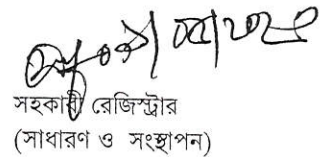 সহকারী রেজিস্ট্রার
(সাধারণ ও সংস্থাপন)